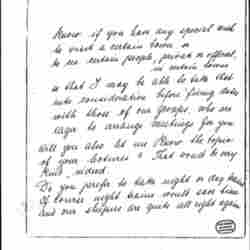 know if you have any special wish
to visit a certain town or
to see certain people, private or official,
in certain towns
so that I may be able to take that
into consideration before fixing dates
with those of our groups, who are
eager to arrange meetings for you
Will you also let me know the topics
of your lectures? That would be very
kind indeed.
Do you prefer to take night or day trains
Of course night trains would save time
and our sleepers are quite all right again